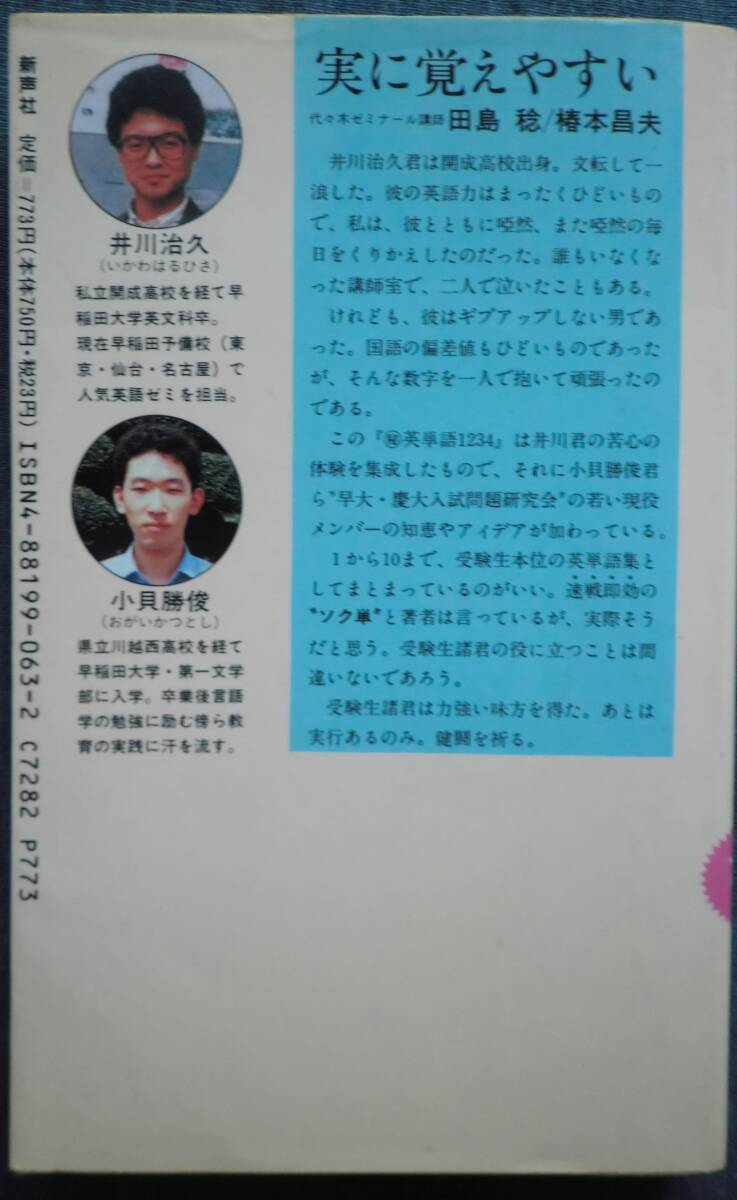 実に覚えやすい
代々木ゼミナール講師 田島 稔/椿本昌夫
井川治久君は開成高校出身。文転して一
浪した。彼の英語力はまったくひどいもの
で、私は、彼とともに啞然、また啞然の毎
日をくりかえしたのだった。誰もいなくな
った講師室で、二人で泣いたこともある。
けれども、彼はギブアップしない男であ
った。国語の偏差値もひどいものであった
が、そんな数字を一人で抱いて頑張ったの
である。
この『㊙英単語1234』は井川君の苦心の
体験を集成したもので、それに小貝勝俊君
ら"早大・慶大入試問題研究会"の若い現役
メンバーの知恵やアイデアが加わっている。
1から10まで、受験生本位の英単語集と
してまとまっているのがいい。速戦即効の
"ソク単"と著者は言っているが、実際そう
だと思う。受験生諸君の役に立つことは間
違いないであろう。
受験生諸君は力強い味方を得た。あとは
実行あるのみ。健闘を祈る。
井川治久
(いかわはるひさ)
私立開成高校を経て早
稲田大学英文科卒。
現在早稲田予備校(東
京・仙台・名古屋)で
人気英語ゼミを担当。
小貝勝俊
(おがいかつとし)
県立川越西高校を経て
早稲田大学・第一文学
部に入学。卒業後言語
学の勉強に励む傍ら教
育の実践に汗を流す。
新声社 定価=773円(本体750円・税23円) ISBN4-88199-063-2 C7282 P773